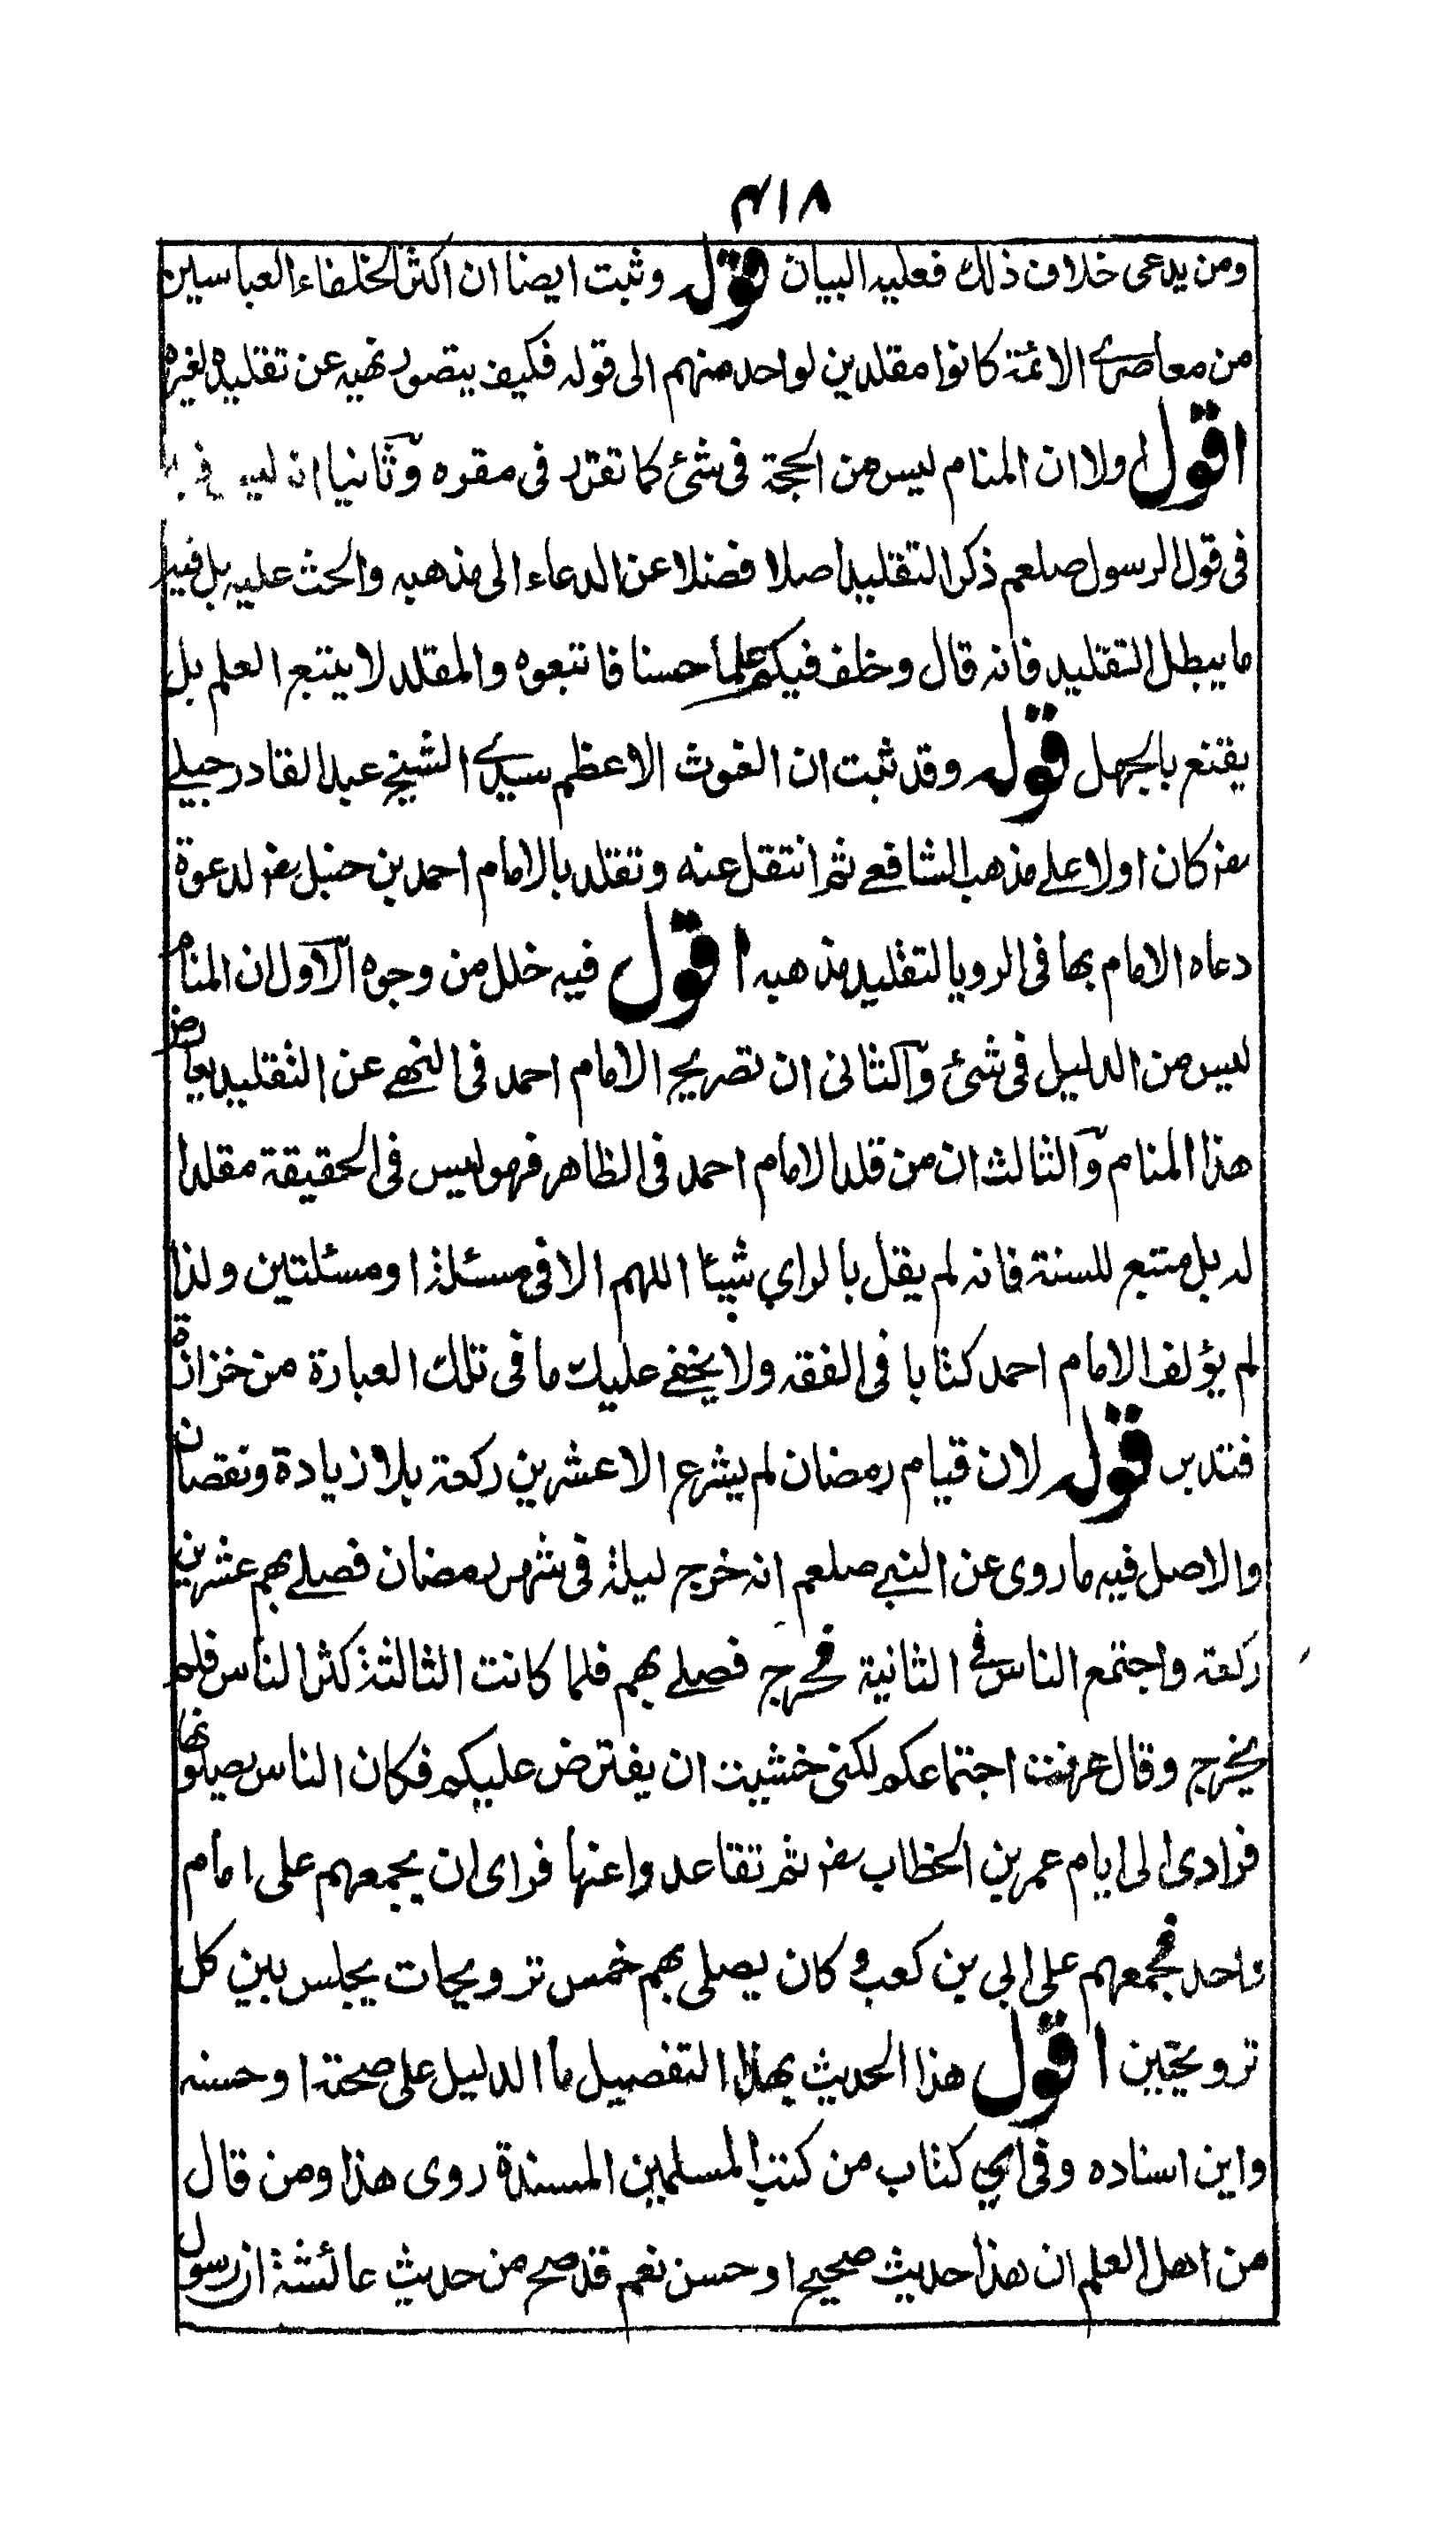 ٤١٨
ومن يدعى خلاف ذلك فعليه البيان قوله وثبت ايضا ان اكثر الخلفاء العباسين
من معاصرى الائمة كانوا مقلدين لواحد منهم الى قوله فكيف يتصور نهيه عن تقليده لغيره
اقول اولا ان المنام ليس من الحجة فى شئ كما تقرر فى مقره وثانيا انه ليس
فى قول الرسول صلعم ذكر التقليد اصلا فضلا عن الدعاء الى مذهبه والحث عليه بل فيه
ما يبطل التقليد فانه قال وخلف فيكم علما حسنا فاتبعوه والمقلد لا يتبع العلم بل
يقنع بالجهل قوله وقد ثبت ان الغوث الاعظم سيدى الشيخ عبد القادر جيلے
رضـ كان اولا على مذهب الشافعے ثم انتقل عنه وتقلد بالامام احمد بن حنبل رضـ لدعوة
دعاه الامام بها فى الرويا لتقليد مذهبه اقول فيه خلل من وجوه الآول ان المنام
ليس من الدليل فى شئ وآلثانى ان تصريح الامام احمد فى النهے عن التقليد يعارض
هذا المنام وآلثالث ان من قلد الامام احمد فى الظاهر فهو ليس فى الحقيقة مقلدا
له بل متبع للسنة فانه لم يقل بالراي شيئا اللهم الا فى مسئلة او مسئلتين ولذا
لم يؤلف الامام احمد كتابا فى الفقه ولا يخفے عليك ما فى تلك العبارة من خزازة
فتدبر قوله لان قيام رمضان لم يشرع الا عشرين ركعة بلا زيادة ونقصان
والاصل فيه ما روى عن النبے صلعم انه خرج ليلة فى شهر رمضان فصلے بهم عشرين
ركعة واجتمع الناس فے الثانية فخرج فصلے بهم فلما كانت الثالثة كثر الناس فلم
يخرج وقال عرفت اجتماعكم لكنى خشيت ان يفترض عليكم فكان الناس يصلونها
فرادى الى ايام عمر بن الخطاب رضـ ثم تقاعدوا عنها فراى ان يجمعهم على امام
واحد فجمعهم على ابي بن كعب وكان يصلى بهم خمس ترويحات يجلس بين كل
ترويحتين اقول هذا الحديث بهذا التفصيل ما الدليل على صحتة او حسنه
واين اسناده وفى اي كتاب من كتب المسلمين المسندة روى هذا ومن قال
من اهل العلم ان هذا حديث صحيح او حسن نعم قد صح من حديث عائشة ان رسول